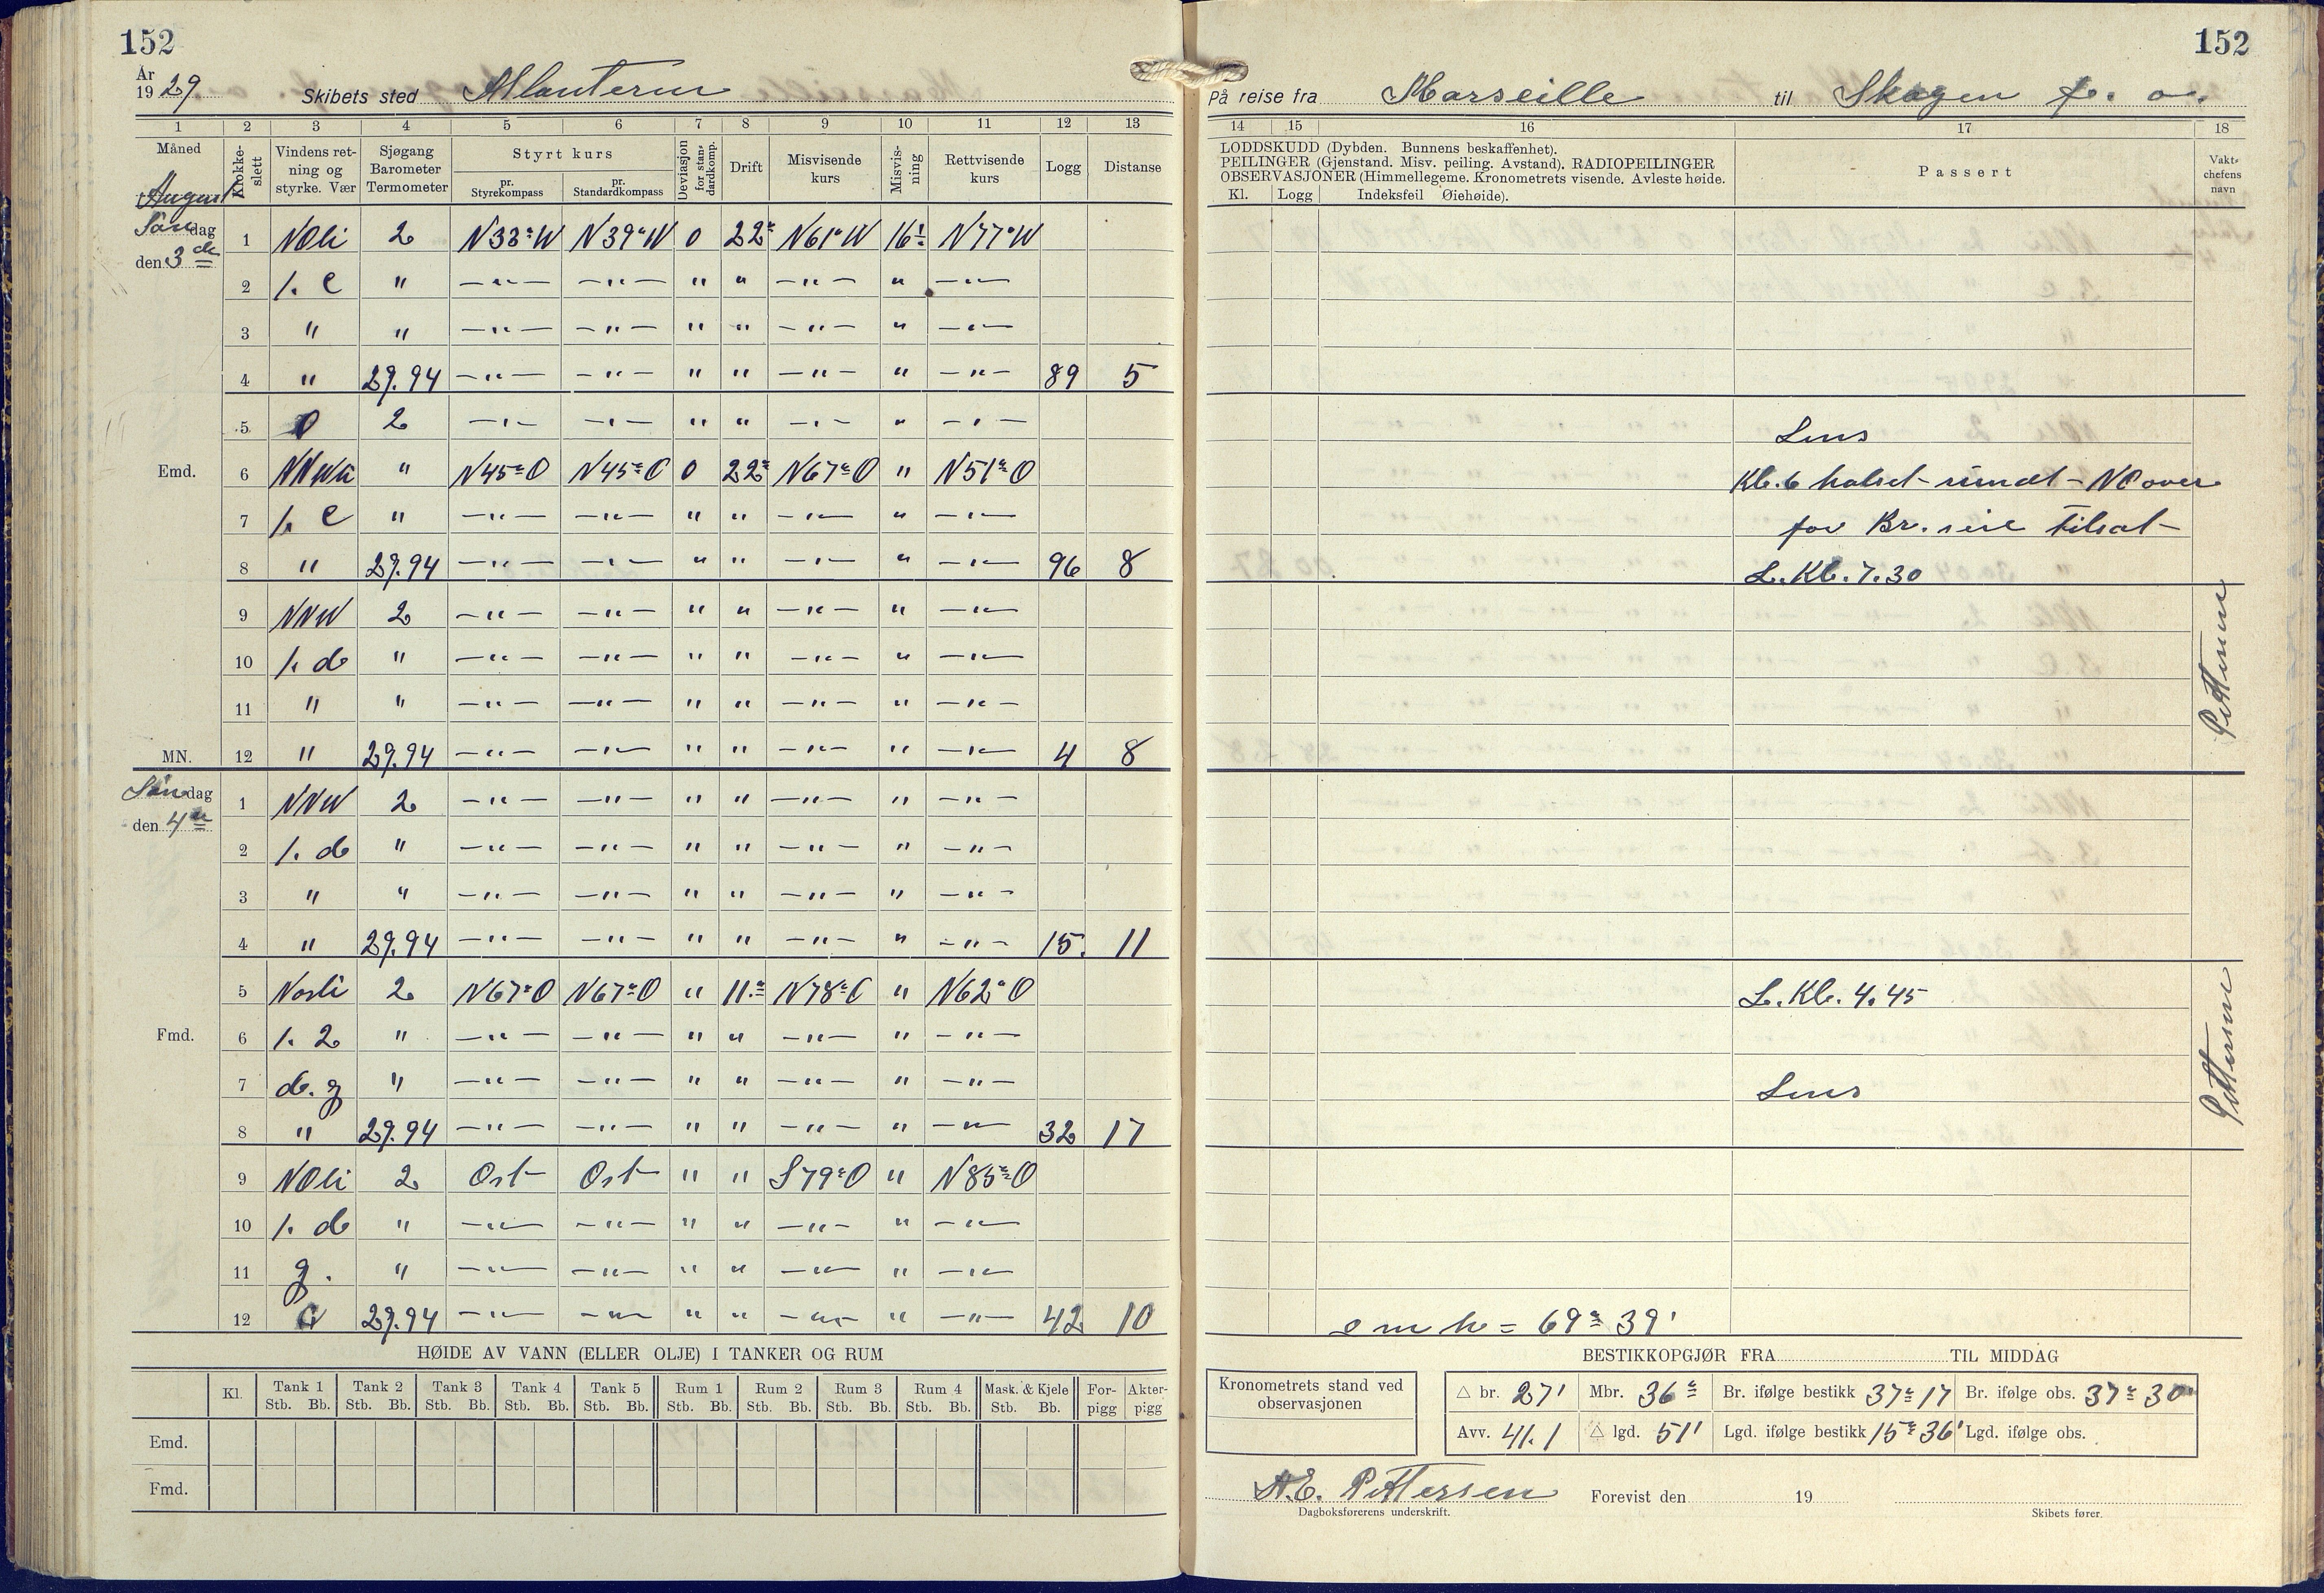 152
År 1929 Skibets sted Atlanteren
1 2 3 4 5 6 7 8 9 10 11 12 13
Måned Klokkeslett Vindens retning og styrke. Vær Sjøgang Barometer Termometer Styrt kurs pr. Styrekompass pr. Standardkompass Deviasjon for standardkomp. Drift Misvisende kurs Misvisning Rettvisende kurs Logg Distanse
August
dag den 3 de
1 NOli 2 N33°W N39°W 0 22° N61°W 16° N77°W
2 1. C " —"— —"— " " —"— " —"—
3 " " —"— —"— " " —"— " —"—
4 " 29.94 —"— —"— " " —"— " —"— 89 5
5 0 2 —"— —"— " " —"— " —"—
Emd. 6 " N45°O N45°O 0 22° N67°O " N51°O
7 1. C " —"— —"— " " —"— " —"—
8 " 29.94 —"— —"— " " —"— " —"— 96 8
9 NNW 2 —"— —"— " " —"— " —"—
10 1. d " —"— —"— " " —"— " —"—
11 " " —"— —"— " " —"— " —"—
MN. 12 " 29.94 —"— —"— " " —"— " —"— 4 8
Søndag den 4 de
1 NNW 2 —"— —"— " " —"— " —"—
2 1. d " —"— —"— " " —"— " —"—
3 " " —"— —"— " " —"— " —"—
4 " 29.94 —"— —"— " " —"— " —"— 15. 11
5 Nosli 2 N67°O N67°O " 11.° N78°O " N62°O
Fmd. 6 1. 2 " —"— —"— " " —"— " —"—
7 d. g " —"— —"— " " —"— " —"—
8 " 29.94 —"— —"— " " —"— " —"— 32 17
9 NOli 2 Ost Ost " " S79°O " N85°O
10 1. d " —"— —"— " " —"— " —"—
11 g. " —"— —"— " " —"— " —"—
12 29.94 —"— —"— " " —"— " —"— 42 10
HØIDE AV VANN (ELLER OLJE) I TANKER OG RUM
Kl. Tank 1 Tank 2 Tank 3 Tank 4 Tank 5 Rum 1 Rum 2 Rum 3 Rum 4 Mask. & Kjele For-pigg Akter-pigg
Stb. Bb. Stb. Bb. Stb. Bb. Stb. Bb. Stb. Bb. Stb. Bb. Stb. Bb. Stb. Bb. Stb. Bb. Stb. Bb.
Emd.
Fmd.
152
På reise fra Marseille til Skagen f. o.
14 15 16 17 18
LODDSKUDD (Dybden. Bunnens beskaffenhet).
PEILINGER (Gjenstand. Misv. peiling. Avstand). RADIOPEILINGER
OBSERVASJONER (Himmellegeme. Kronometrets visende. Avleste høide.
Kl. Logg Indeksfeil Øiehøide).
Passert
Vakt-chefens navn
Lens
Kl. 6 halset rundt – NO over
for Br. seil tilsat
L. Kl. 7.30
Pettersen
L. Kl. 4.45
Lens
Pettersen
o m h = 69° 39'
BESTIKKOPGJØR FRA TIL MIDDAG
Kronometrets stand ved observasjonen
△ br. 27' Mbr. 36° Br. ifølge bestikk 37° 17 Br. ifølge obs. 37° 30
Avv. 41.1 △ lgd. 51' Lgd. ifølge bestikk 15° 36' Lgd. ifølge obs.
A.E. Pettersen Forevist den 19
Dagboksførerens underskrift. Skibets fører.